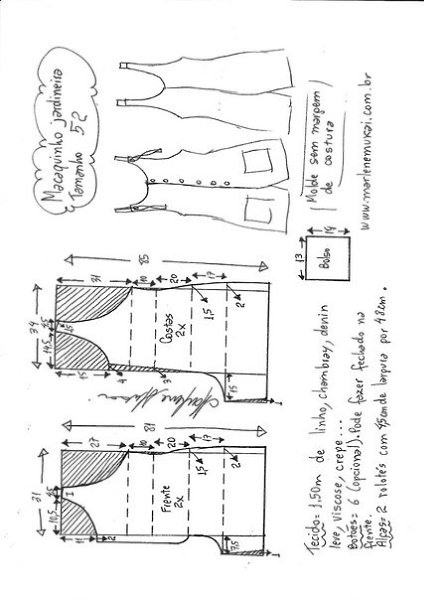 Macaquinho jardineira
Tamanho 52
Molde sem margem
de costura
www.marlenemukai.com.br
85
31
10
20
17
34
15
4
3
1,5
2
15
1
Costas
2x
13
14
Bolso
81
27
10
20
17
31
10,5
11
2
1,5
2
7,5
1
Frente
2x
Tecido= 1,50m de linho, chambray, denin
leve, viscose, crepe...
Botões= 6 (opcional). Pode fazer fechado na
frente.
Alças= 2 rolotês com de largura por 48cm.